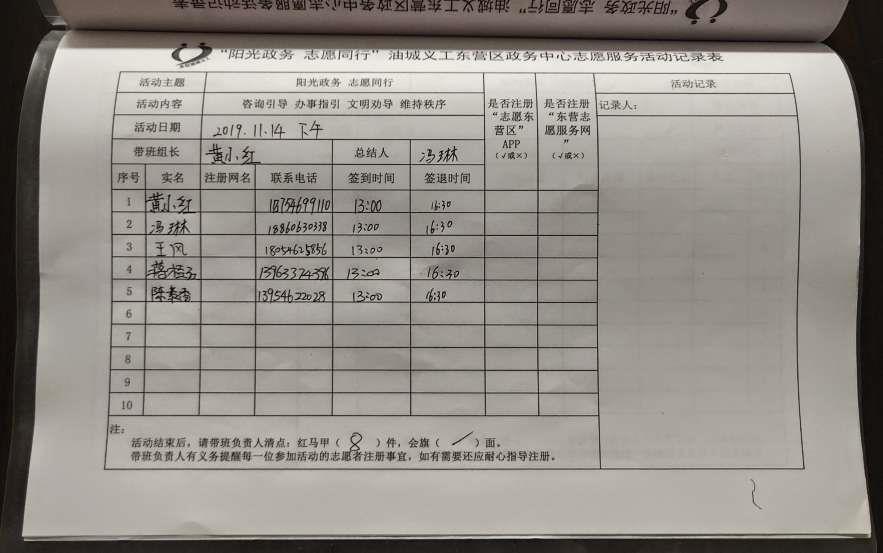 “阳光政务 志愿同行”油城义工东营区政务中心志愿服务活动记录表
“阳光政务 志愿同行”油城义工东营区政务中心志愿服务活动记录表
活动主题 阳光政务 志愿同行 是否注册“志愿东营区”APP（√或×） 是否注册“东营志愿服务网”（√或×） 活动记录
活动内容 咨询引导 办事指引 文明劝导 维持秩序 记录人：
活动日期 2019.11.14 下午
带班组长 黄小红 总结人 冯琳
序号 实名 注册网名 联系电话 签到时间 签退时间
1 黄小红 18754699110 13:00 16:30
2 冯琳 18860630338 13:00 16:30
3 王风 18054625856 13:00 16:30
4 13963374398 13:00 16:30
5 陈素香 13954622028 13:00 16:30
6
7
8
9
10
注：
活动结束后，请带班负责人清点：红马甲（ 8 ）件，会旗（ / ）面。
带班负责人有义务提醒每一位参加活动的志愿者注册事宜，如有需要还应耐心指导注册。